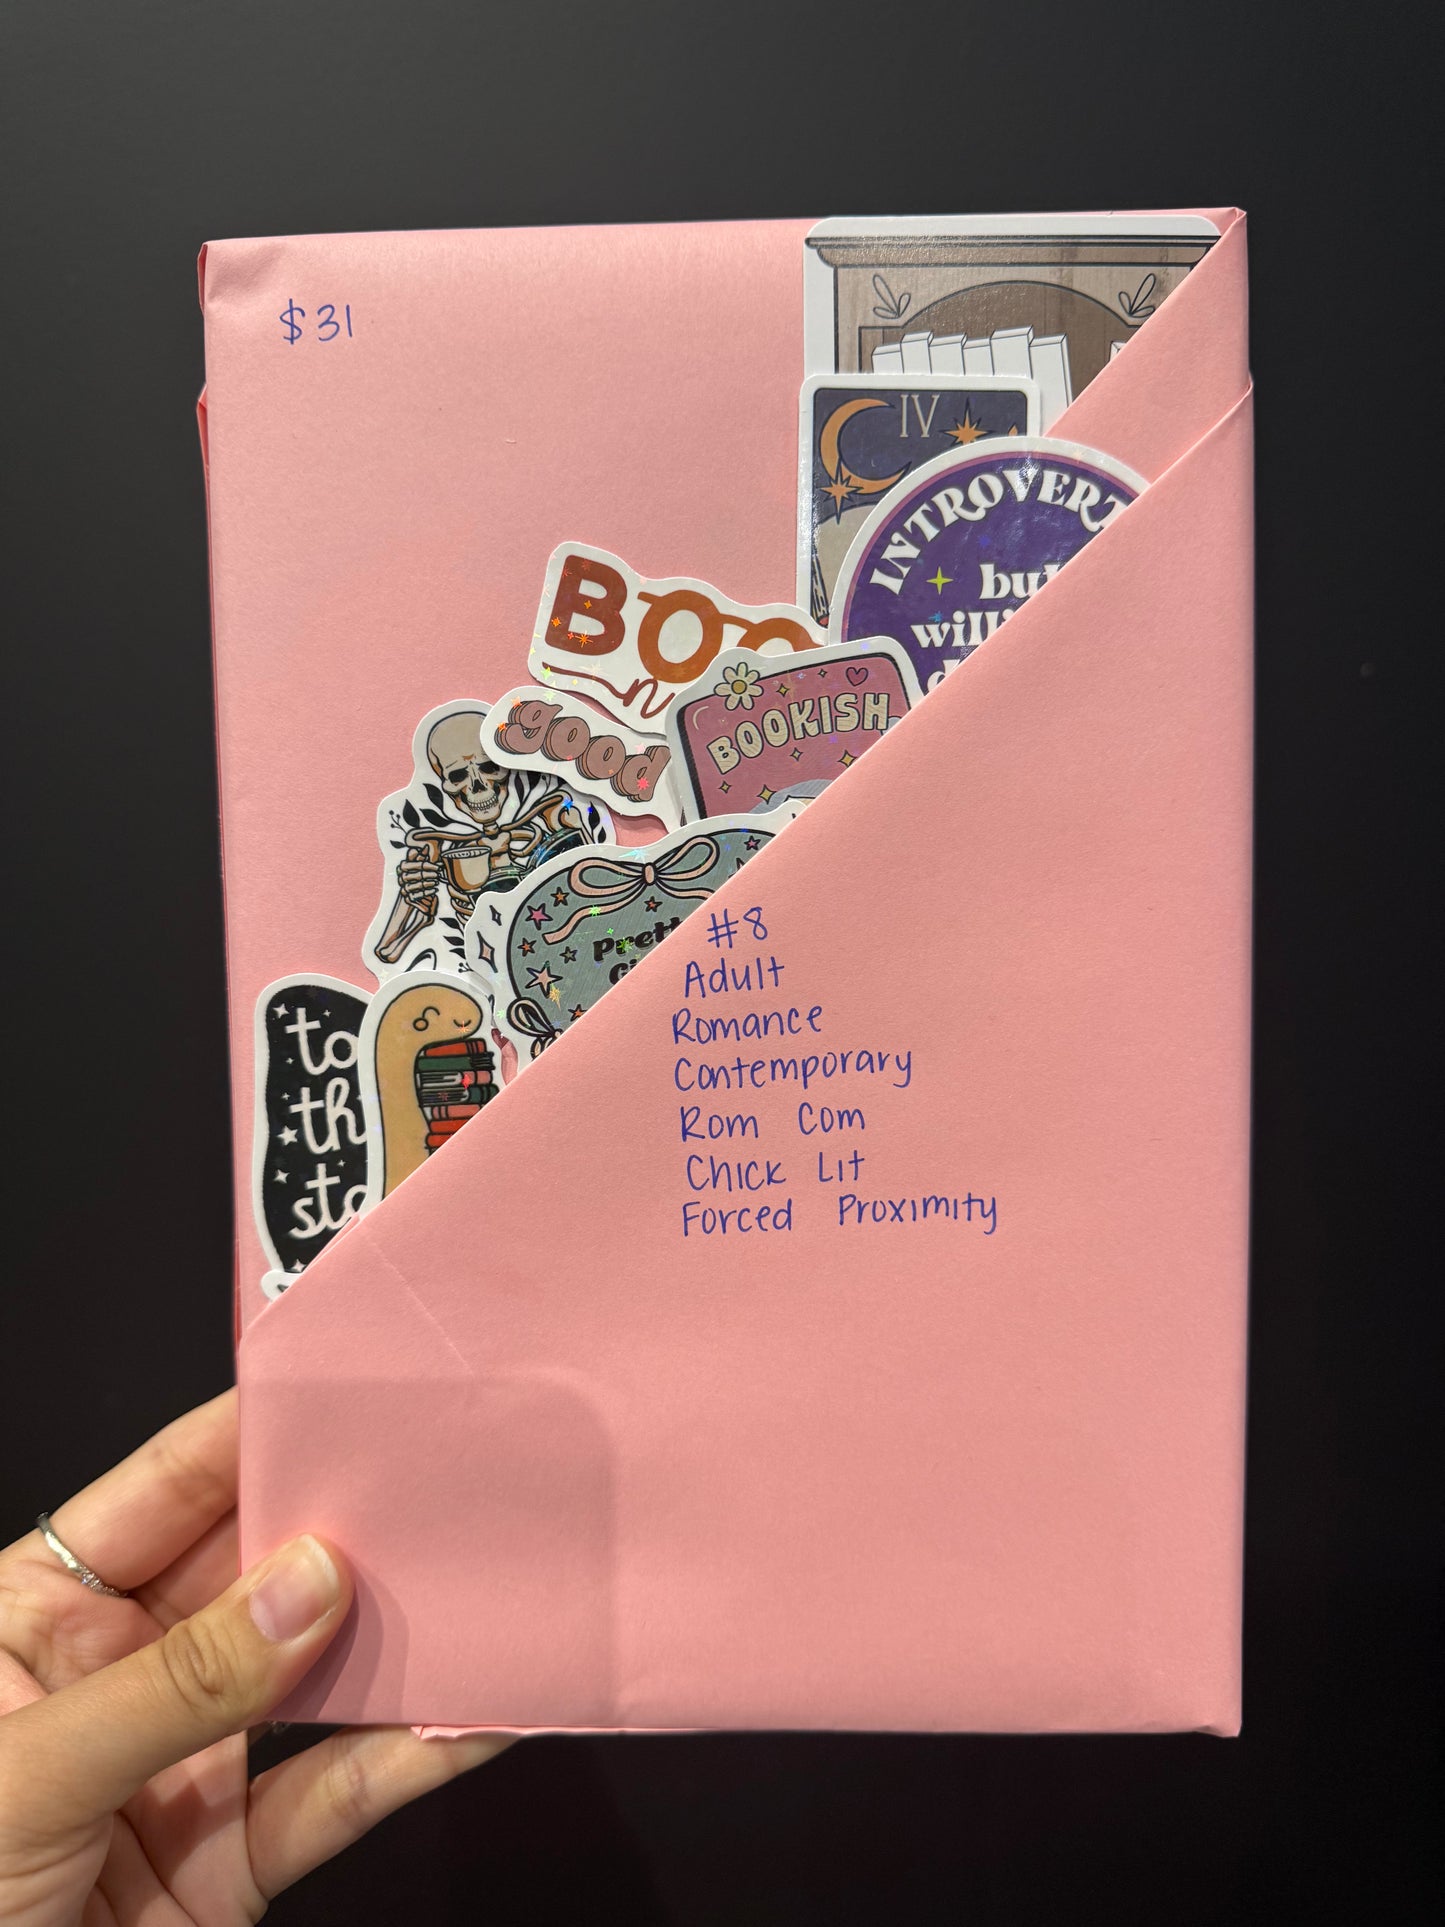 $31
IV
INTROVERT
but
BOO
good
BOOKISH
to
#8
Adult
Romance
Contemporary
Rom Com
Chick Lit
Forced Proximity